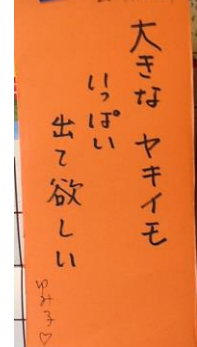 大きな ヤキイモ
いっぱい
出て欲しい
ゆみ子♡